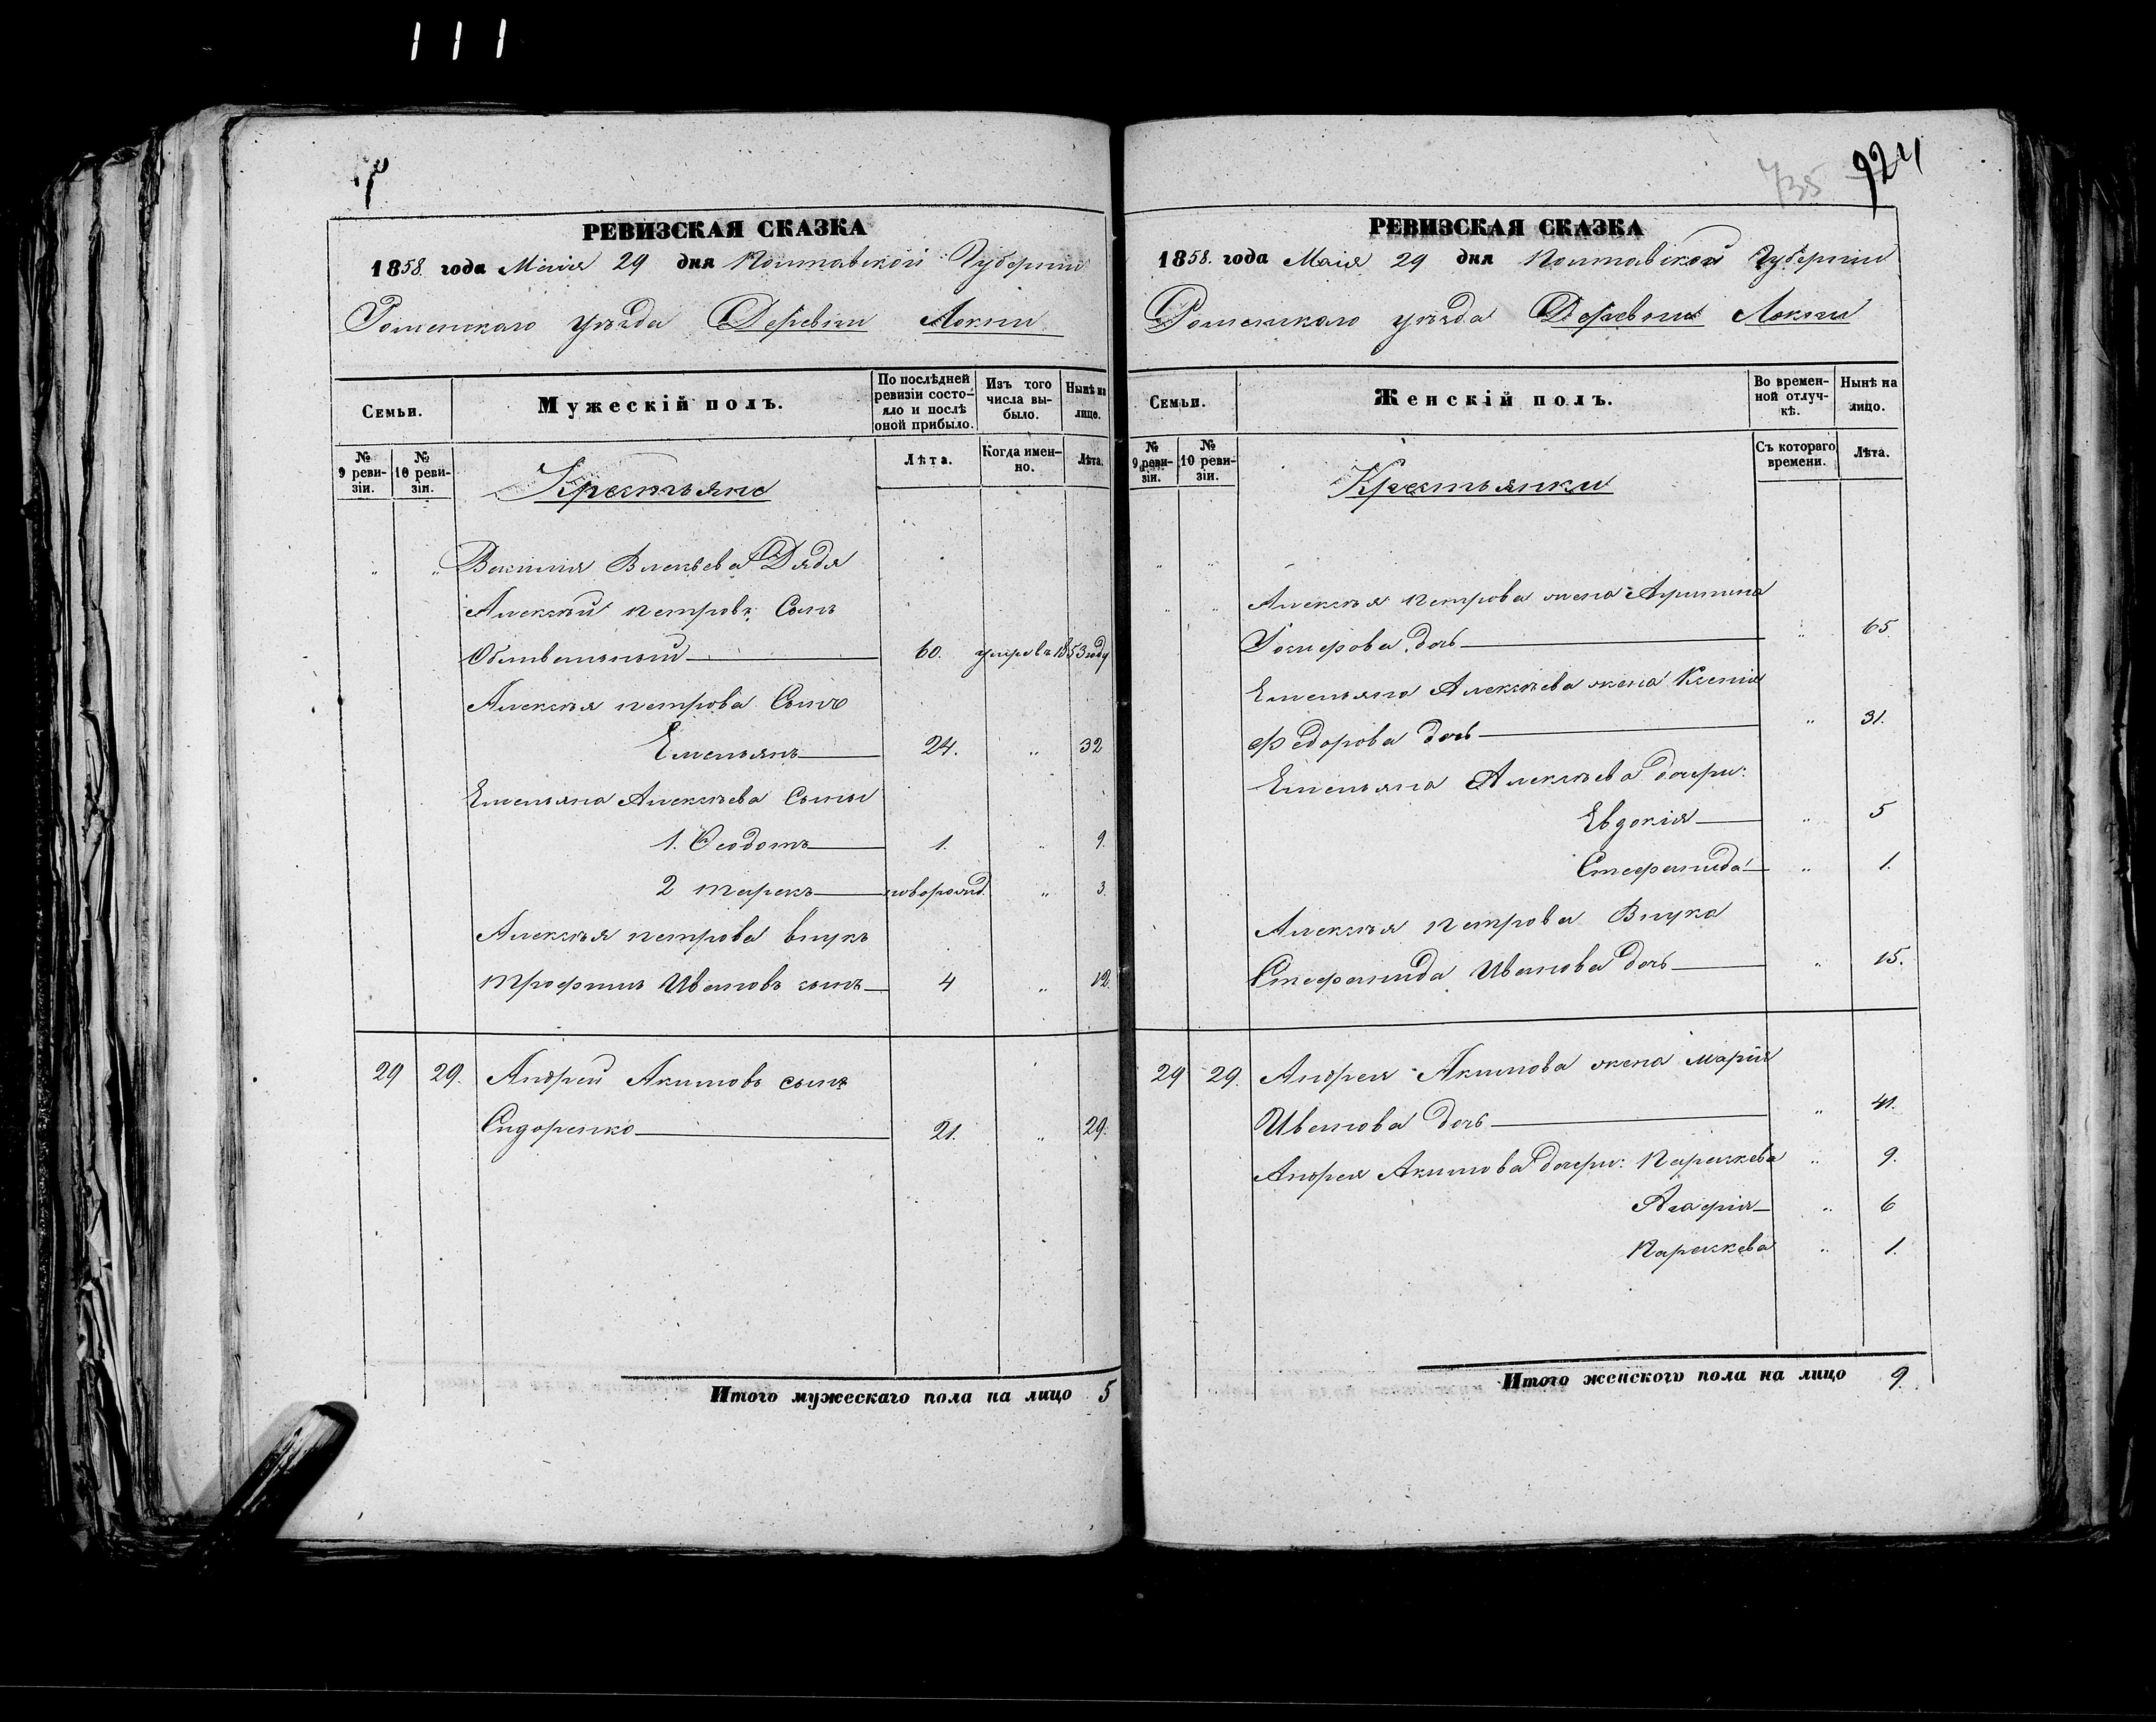 111
РЕВИЗСКАЯ СКАЗКА
1858. года Маія 29 дня Полтавской Губерніи
Роменскаго уѣзда Деревни Локни
Семьи.
Мужескій полъ.
По послѣдней ревизіи состояло и послѣ оной прибыло.
Изъ того числа выбыло.
Нынѣ на лице.
№ 9 ревизіи.
№ 10 ревизіи.
Крестьяне
Лѣта.
Когда именно.
Лѣта.
" " Дядя
Алексѣй петровъ Сынъ
60. умре въ 1853 году
Алексѣя петрова Сынъ
Емельянъ 24. " 32
Емельяна Алексѣева Сыны
1. Ѳеодотъ 1. " 9.
2 тарасъ новорожд. " 3.
Алексѣя петрова внукъ
трофимъ Ивановъ сынъ 4 " 12.
29 29. Андрей Акимовъ сынъ
Сидоренко 21. " 29.
Итого мужескаго пола на лицо 5
735 924
РЕВИЗСКАЯ СКАЗКА
1858. года Маія 29 дня Полтавской Губерніи
Роменскаго уѣзда Деревни Локни
Семьи.
Женскій полъ.
Во временной отлучкѣ.
Нынѣ на лицо.
№ 9 ревизіи.
№ 10 ревизіи.
Крестьянки
Съ котораго времени.
Лѣта.
" "
" " Алексѣя петрова жена
дочь " 65.
Емельяна Алексѣева жена Ксенія
Федорова дочь " 31.
Емельяна Алексѣева дочери:
Евдокія " 5
Стефанида " 1.
Алексѣя петрова Внука
Стефанида Иванова дочь " 15.
29 29. Андрея Акимова жена марія
Иванова дочь " 41.
Андрея Акимова дочери: Параскева " 9.
Агафія " 6
Параскева " 1.
Итого женского пола на лицо 9.